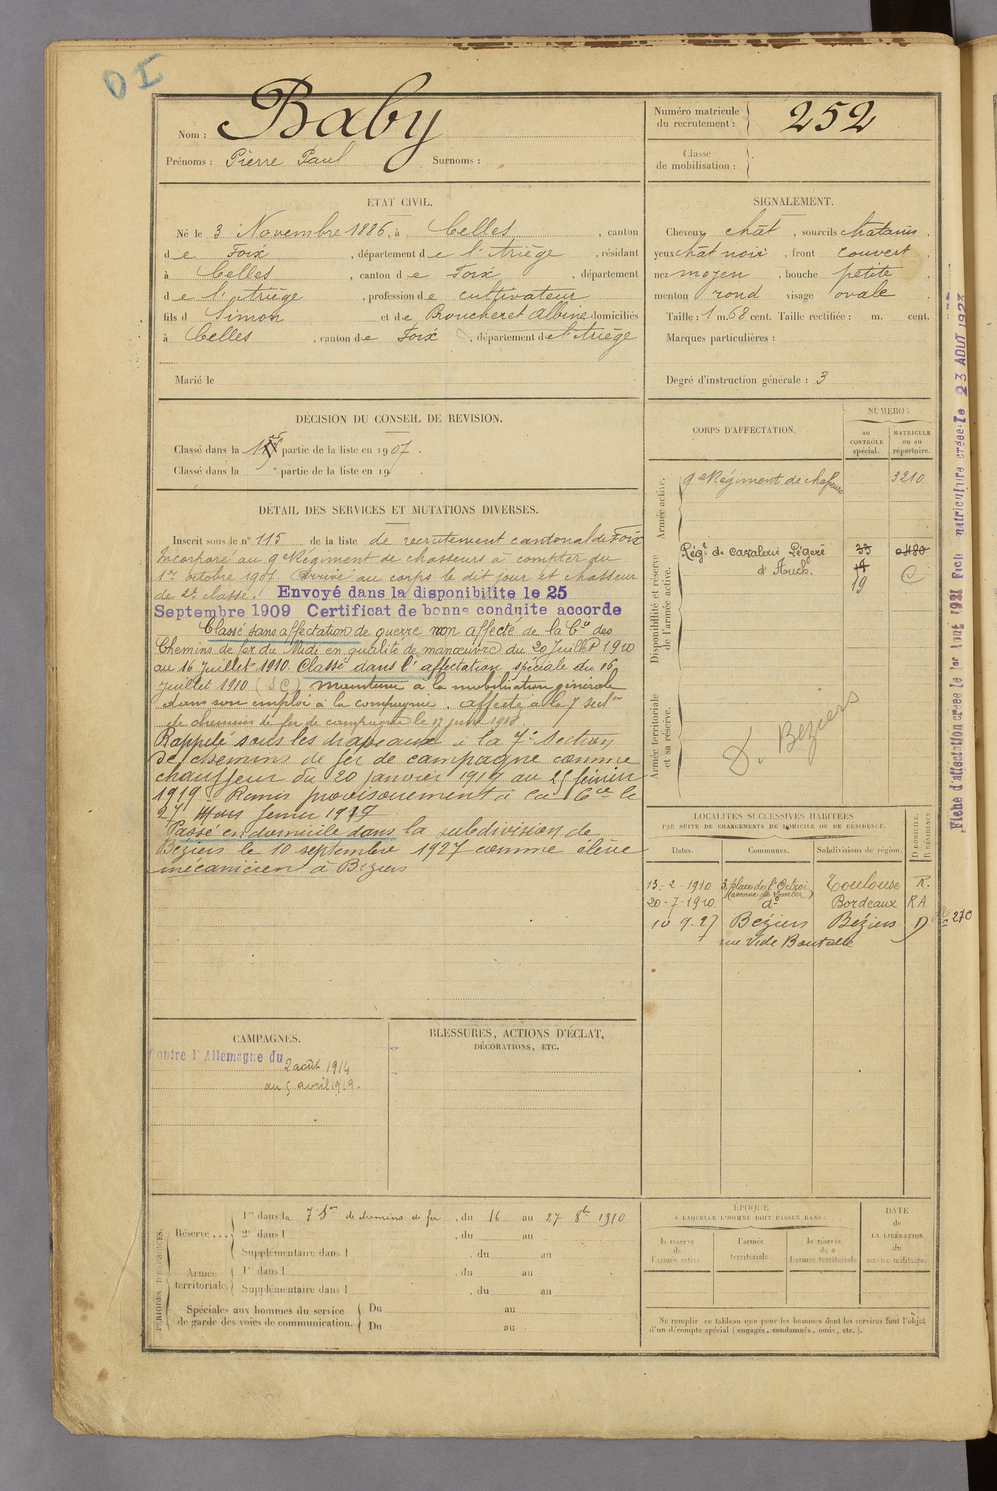 OI
Nom : Baby
Prénoms : Pierre Paul Surnoms :
Numéro matricule du recrutement : 252
Classe de mobilisation :
ETAT CIVIL.
Né le 3 Novembre 1886, à Celles, canton
de Foix, département de l'Ariège, résidant
à Celles, canton de Foix, département
de l'Ariège, profession de cultivateur
fils de Simon et de Boucheret Albine domiciliés
à Celles, canton de Foix, département de l'Ariège
Marié le
SIGNALEMENT.
Cheveux chât, sourcils chatains,
yeux chât noir, front couvert,
nez moyen, bouche petite
menton rond visage ovale
Taille : 1 m. 68 cent. Taille rectifiée : m. cent.
Marques particulières :
Degré d'instruction générale : 3
DÉCISION DU CONSEIL DE REVISION.
Classé dans la 1re partie de la liste en 1907.
Classé dans la e partie de la liste en 19
CORPS D'AFFECTATION.
NUMÉRO :
au CONTRÔLE spécial.
MATRICULE ou au répertoire.
Armée active.
9e Régiment de chasseurs 3210
Disponibilité et réserve de l'armée active.
Régt de cavalerie Légère
d'Auch.
19 C
Armée territoriale et sa réserve.
D. Beziers
DÉTAIL DES SERVICES ET MUTATIONS DIVERSES.
Inscrit sous le n° 115 de la liste de recrutement cantonal de Foix
Incorporé au 9e Régiment de chasseurs à compter du
1er octobre 1907. Arrivé au corps le dit jour et chasseur
de 2e classe. Envoyé dans la disponibilite le 25
Septembre 1909 Certificat de bonne conduite accorde
Classé sans affectation de guerre non affecté de la Cie des
Chemins de fer du Midi en qualité de manœuvre du 20 Juillet 1910
au 16 juillet 1910. Classé dans l'affectation spéciale du 16
juillet 1910 (S C) maintenu à la mobilisation générale
dans son emploi à la compagnie. affecté à la 7 Section
de chemins de fer de campagne le 17 juin 1918
Rappelé sous les drapeaux à la 7e Section
de chemins de fer de campagne comme
chauffeur du 20 janvier 1919 au 25 février
1919. Remis provisoirement à la Cie le
27 février 1919
Passé en domicile dans la subdivision de
Béziers le 10 septembre 1927 comme élève
mécanicien à Béziers
LOCALITÉS SUCCESSIVES HABITÉES
PAR SUITE DE CHANGEMENTS DE DOMICILE OU DE RÉSIDENCE.
Dates. Communes. Subdivisions de région. D DOMICILE. R RÉSIDENCE.
13-2-1910 3, place de l'Octroi Toulouse R.
20-7-1910 do Bordeaux RA
10 9.27 Beziers Béziers D
rue Vide Bouteille
270
CAMPAGNES.
Contre l'Allemagne du 2 août 1914
au 5 avril 1919.
BLESSURES, ACTIONS D'ÉCLAT,
DÉCORATIONS, ETC.
PÉRIODES D'EXERCICES.
Réserve... 1re dans la 7 Son de chemins de fer, du 16 au 27 8bre 1910
2e dans l , du au
Supplémentaire dans l , du au
Armée territoriale 1re dans l , du au
Supplémentaire dans l , du au
Spéciales aux hommes du service de garde des voies de communication. Du au
Du au
ÉPOQUE
A LAQUELLE L'HOMME DOIT PASSER DANS :
la réserve de l'armée active
l'armée territoriale
la réserve de l'armée territoriale
DATE de LA LIBÉRATION du service militaire.
Ne remplir ce tableau que pour les hommes dont les services font l'objet
d'un décompte spécial (engagés, condamnés, omis, etc.).
Fiche d'affectation créée le 1er Aout 1921 Fiche matriculaire créée le 23 AOUT 1923